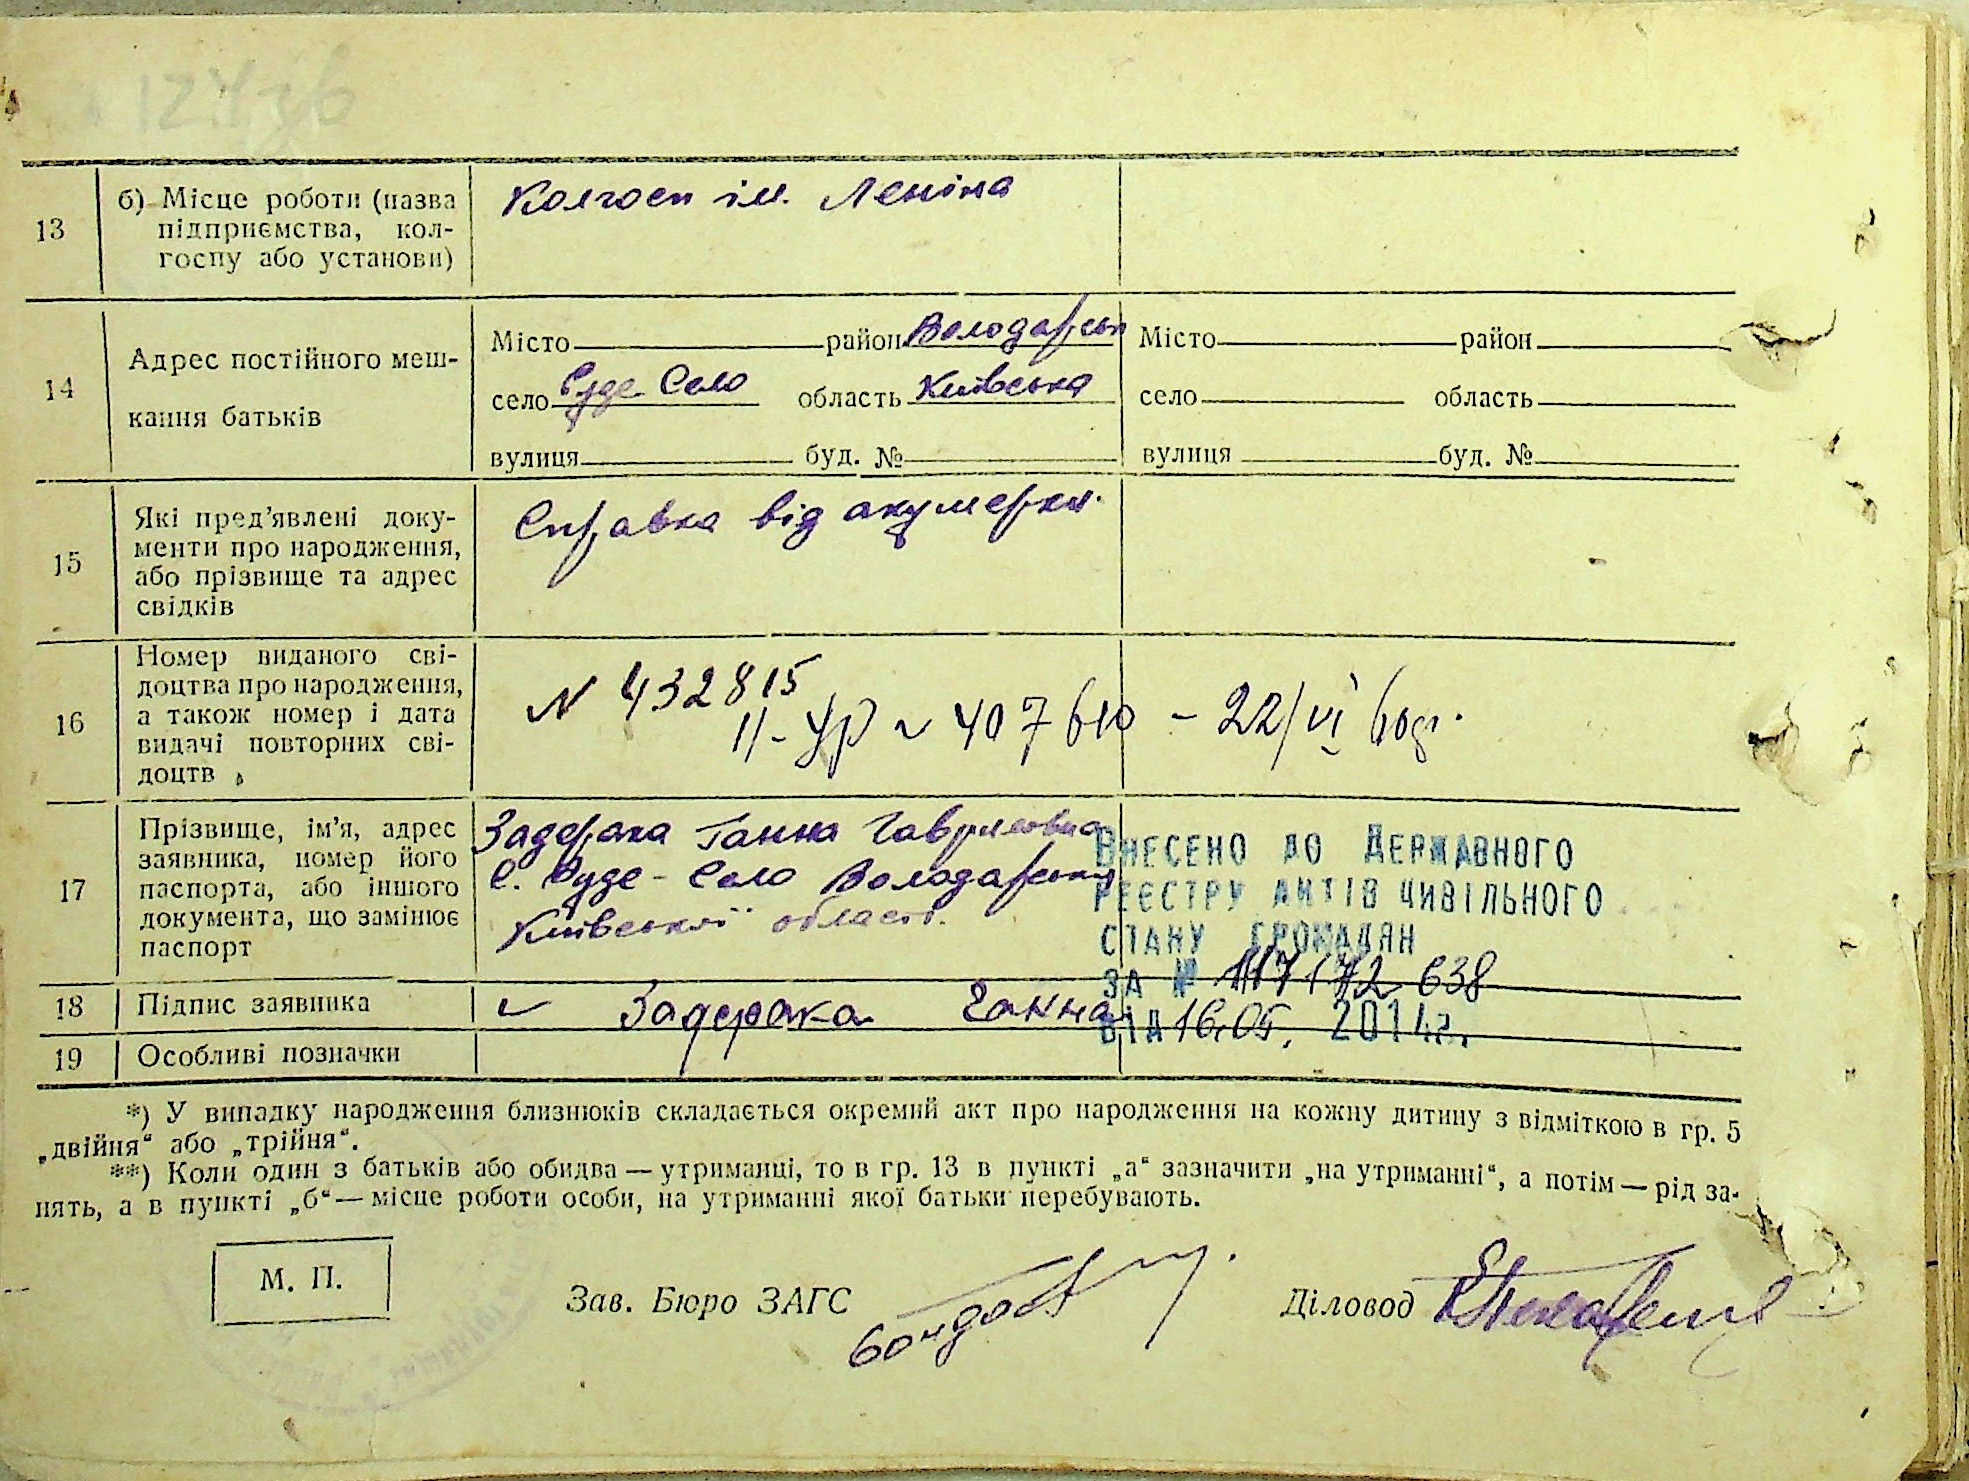 13 б) Місце роботи (назва
підприємства, кол-
госпу або установи)
Колгосп ім. Леніна
14 Адрес постійного меш-
кання батьків
Місто район Володарськ Місто район
село Руде Село область Київська село область
вулиця буд. № вулиця буд. №
15 Які пред’явлені доку-
менти про народження,
або прізвище та адрес
свідків
Справка від акушерки.
16 Номер виданого сві-
доцтва про народження,
а також номер і дата
видачі повторних сві-
доцтв
N 432815
II-УР № 407610 - 22/VI
17 Прізвище, ім’я, адрес
заявника, номер його
паспорта, або іншого
документа, що замінює
паспорт
Задерака Ганна Гаврилівна
С. Руде-Село Володарський
Київської області.
ВНЕСЕНО ДО ДЕРЖАВНОГО
РЕЄСТРУ АКТІВ ЦИВІЛЬНОГО
СТАНУ ГРОМАДЯН
ЗА № 638
ВІД 16.05. 2014г.
18 Підпис заявника
Задерака Ганна
19 Особливі позначки
*) У випадку народження близнюків складається окремий акт про народження на кожну дитину з відміткою в гр. 5
„двійня“ або „трійня“.
**) Коли один з батьків або обидва — утриманці, то в гр. 13 в пункті „а“ зазначити „на утриманні“, а потім — рід за-
нять, а в пункті „б“ — місце роботи особи, на утриманні якої батьки перебувають.
М. П.
Зав. Бюро ЗАГС
Діловод